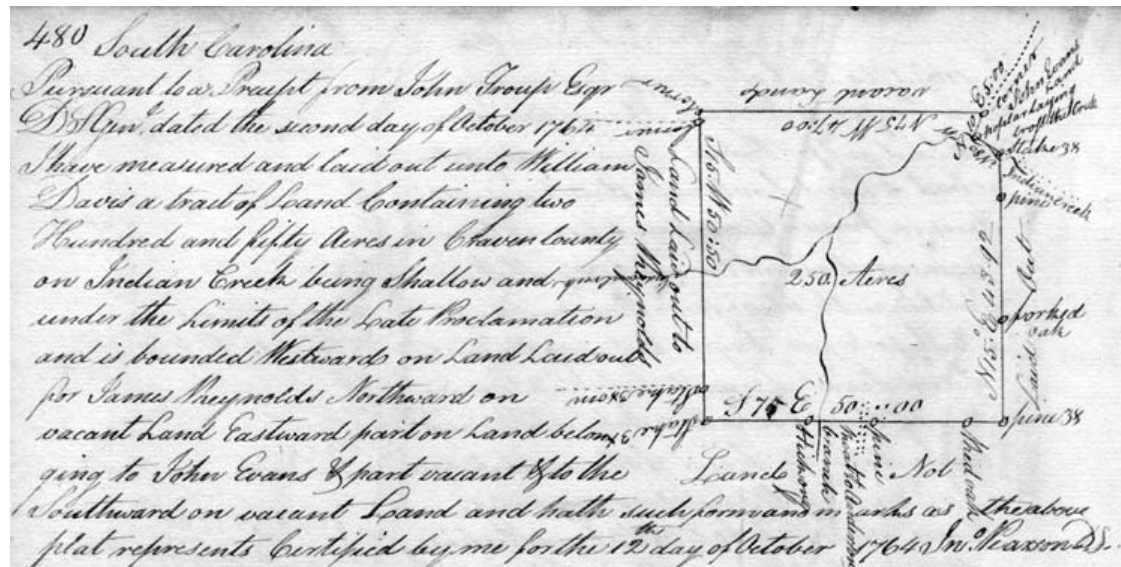 480 South Carolina
Pursuant to a Precept from John Troup Esqr
D S Genl. dated the second day of October 1764
I have measured and laid out unto William
Davis a tract of Land Containing two
Hundred and fifty Acres in Craven County
on Indian Creek being Shallow and
under the Limits of the Late Proclamation
and is bounded Westward on Land Laid out
for James McReynolds Northward on
vacant Land Eastward part on Land belon
ging to John Evans & part vacant & to the
Southward on vacant Land and hath such form and marks as the above
plat represents Certified by me for the 12th day of October 1764 Jno. Pearson D.S.
vacant Land
N 75 W 47:00
S 15 W 50:50
Land Laid out to
James McReynolds
250 Acres
N 15 E
S 75 E 50..00
Land Not
Laid Out
Stake 3x
Hickory
branch
pine
Red oak
pine 38
forked
oak
pine
Indian creek
Stake 38
John Evans
Land